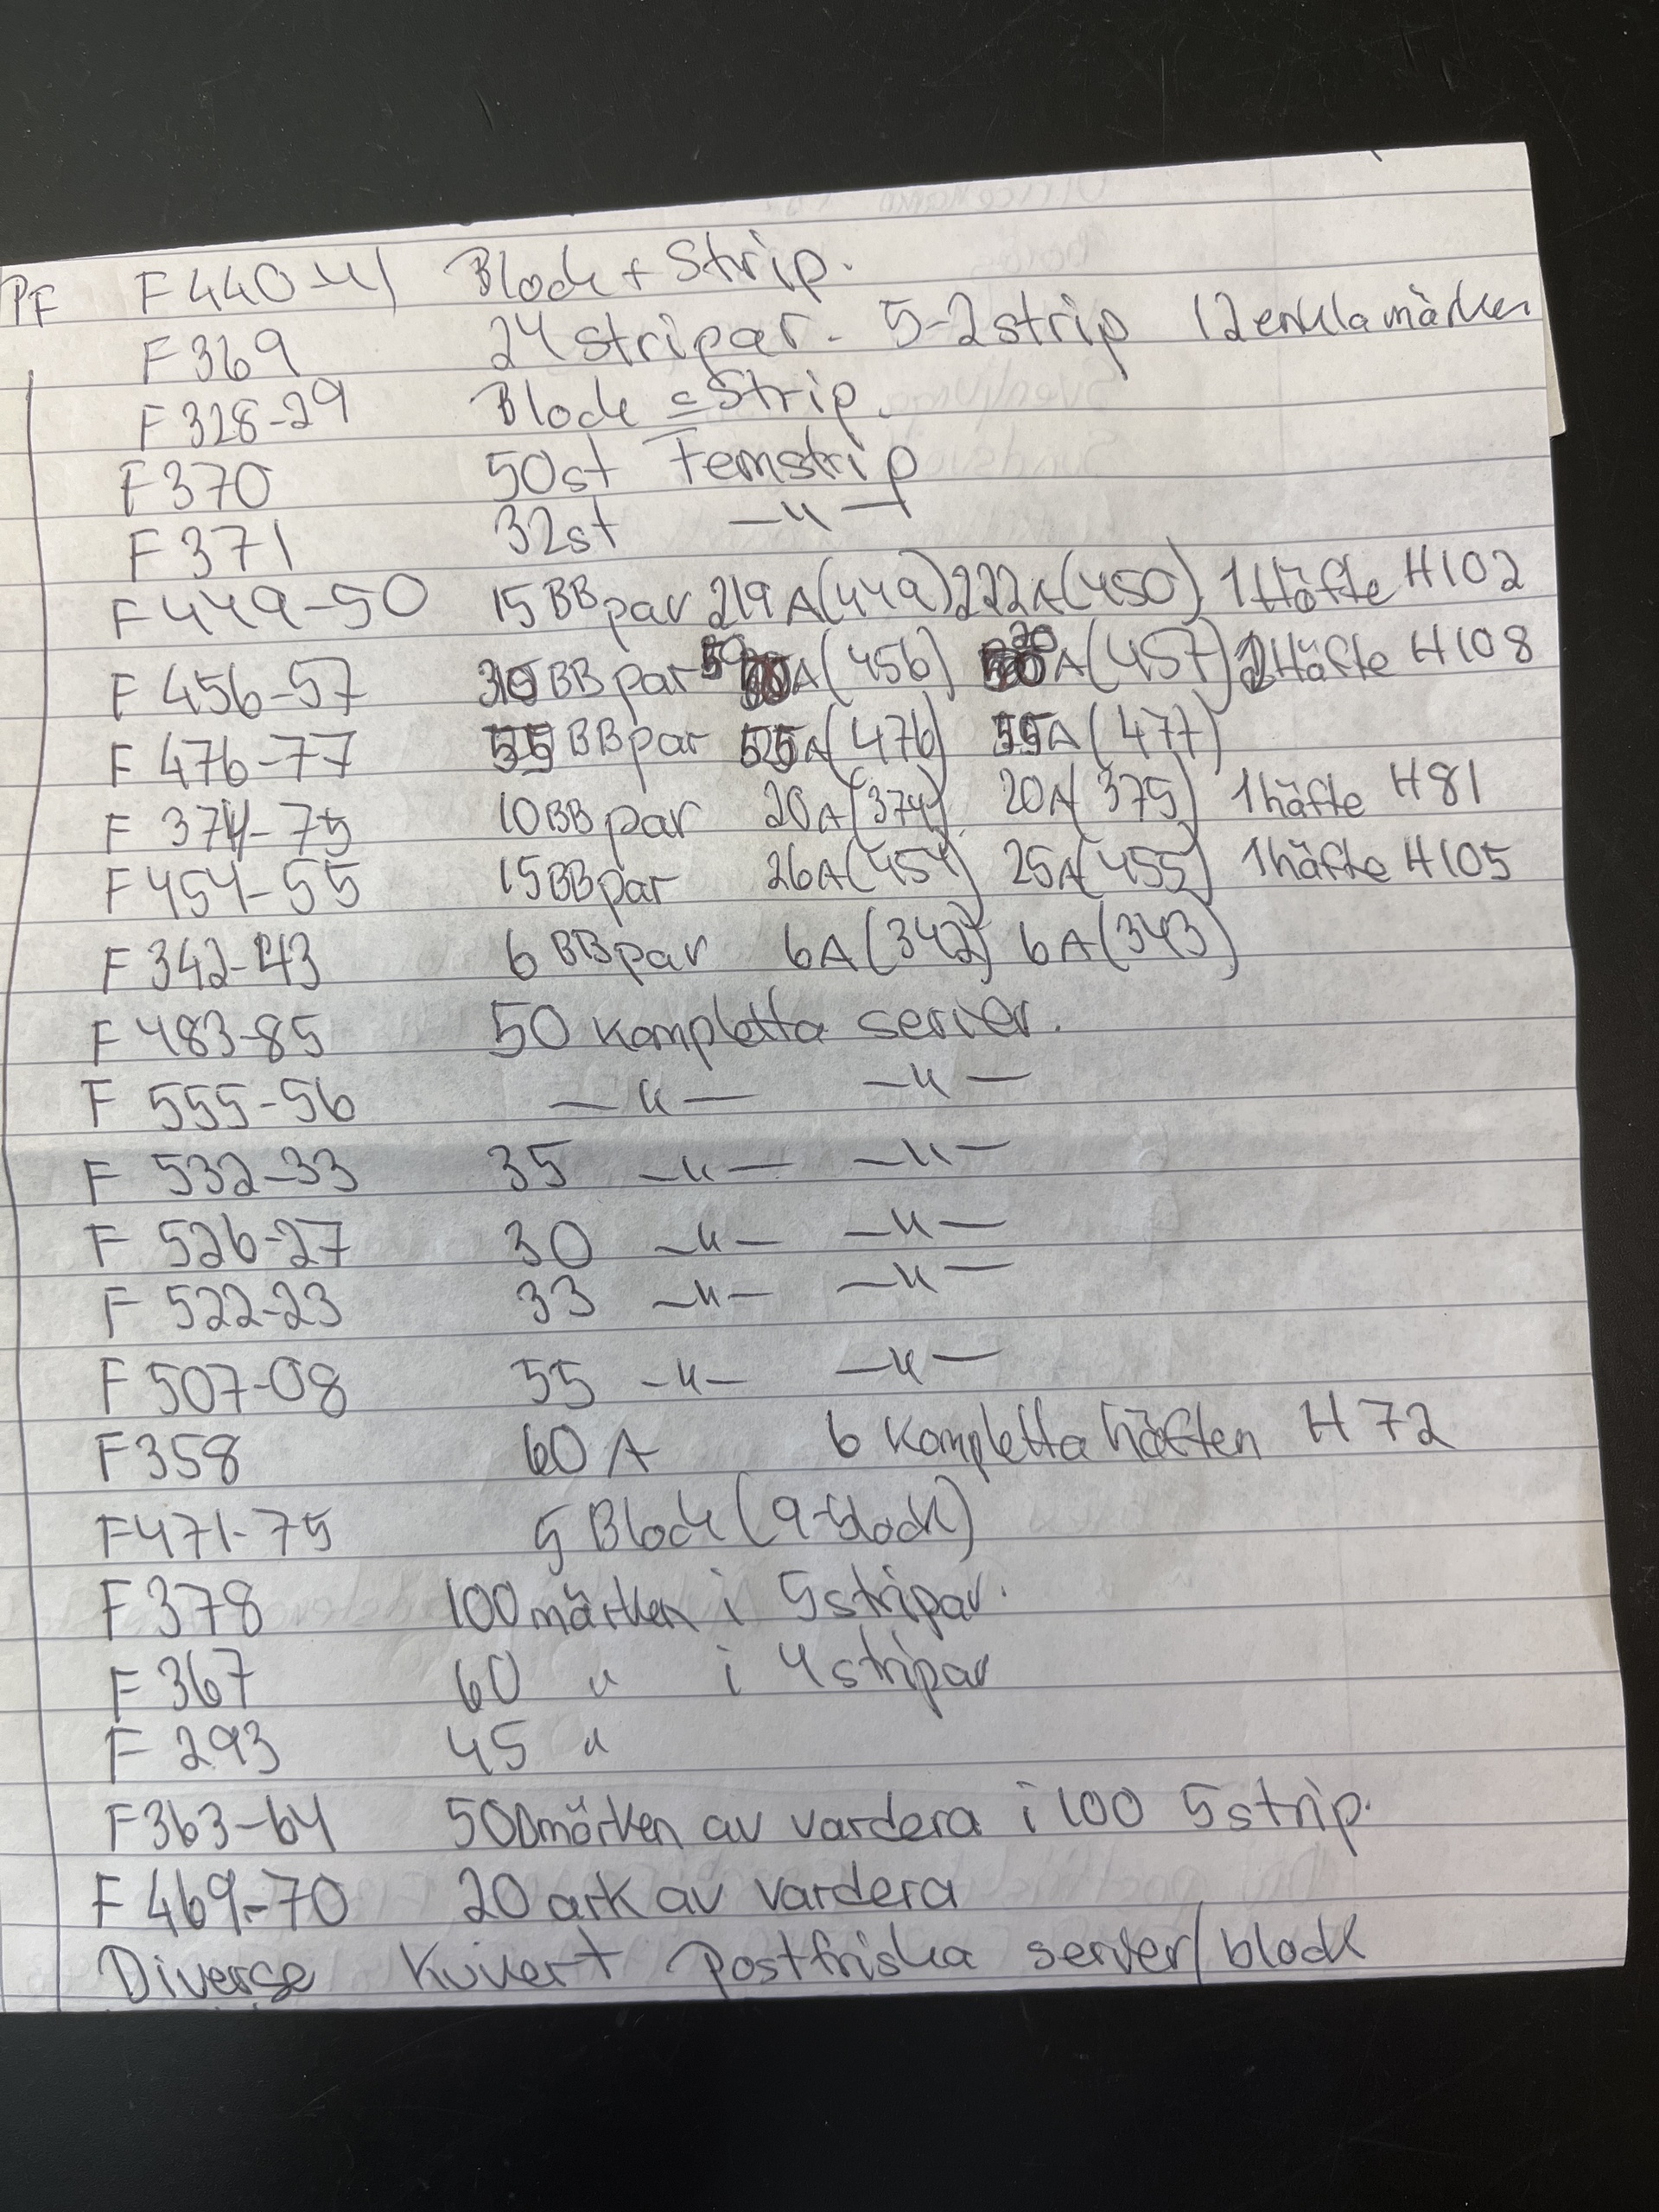 PF F440-41 Block + Strip.
F369 24 stripar. 5-2strip 12 enkla märken
F328-29 Block = Strip.
F370 50st Femstrip
F371 32st —"—
F449-50 15 BB par 219 A (449) 222 A (450) 1 Häfte H102
F 456-57 BB par A (456) A (457) 2 Häfte H108
F 476-77 55 BB par A (476) A (477)
F 374-75 10 BB par 20 A (374) 20 A (375) 1 häfte H81
F 454-55 15 BB par 26 A (454) 25 A (455) 1 häfte H105
F 342-43 6 BB par 6 A (342) 6 A (343)
F 483-85 50 kompletta serier.
F 555-56 —"— —"—
F 532-33 35 —"— —"—
F 526-27 30 —"— —"—
F 522-23 33 —"— —"—
F 507-08 55 —"— —"—
F358 60 A 6 kompletta häften H 72
F471-75 5 Block (9-block)
F378 100 märken i 5 stripar.
F 367 60 " i 4 stripar
F 293 45 "
F363-64 500 märken av vardera i 100 5 strip.
F 469-70 20 ark av vardera
Diverse Kuvert postfriska serier/block